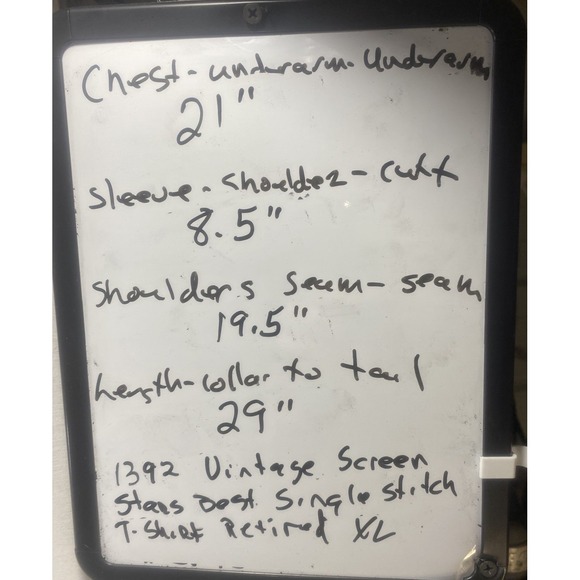 Chest - underarm - Underarm
21"
Sleeve - Shoulder - cuff
8.5"
Shoulders Seam - seam
19.5"
Length - collar to tail
29"
1392 Vintage Screen
Stars Best Single Stitch
T-Shirt Retired XL